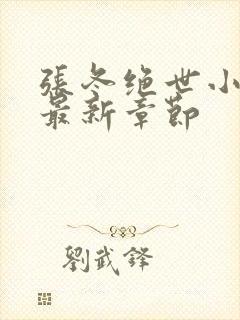 張冬绝世小
最新章節
劉武鋒